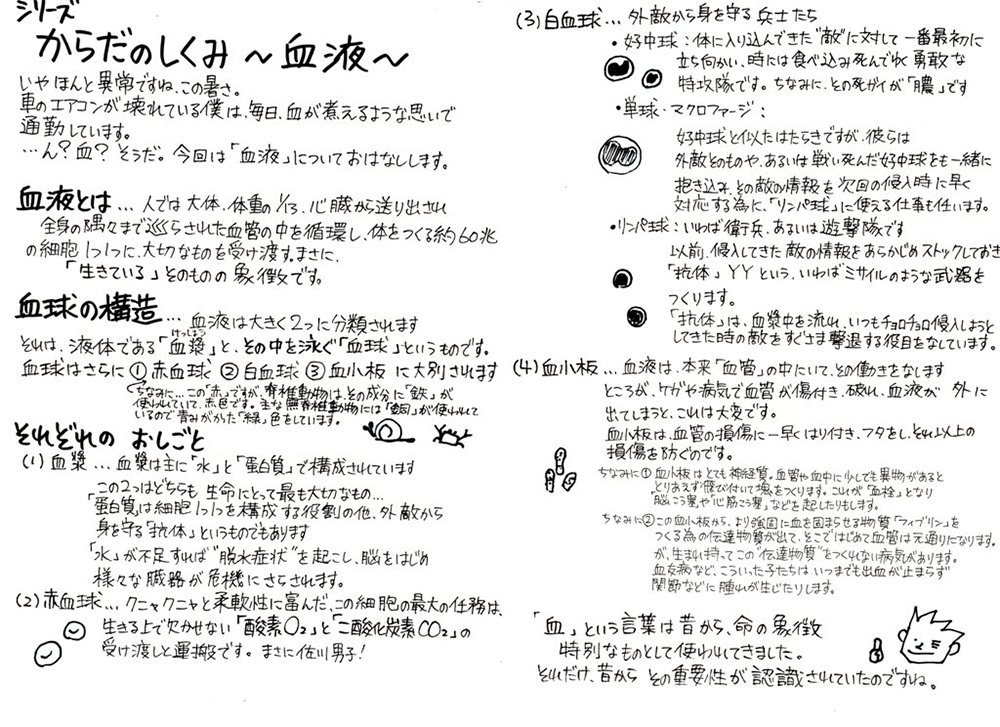 シリーズ
からだのしくみ ～血液～
いやほんと異常ですね、この暑さ。
車のエアコンが壊れている僕は、毎日、血が煮えるような思いで
通勤しています。
…ん？血？そうだ。今回は「血液」についておはなしします。
血液とは … 人では大体、体重の1/13、心臓から送り出され
全身の隅々まで巡らされた血管の中を循環し、体をつくる約60兆
の細胞1つ1つに、大切なものを受け渡す。まさに、
「生きている」そのものの象徴です。
血球の構造 … 血液は大きく2つに分類されます
けっしょう
それは、液体である「血漿」と、その中を泳ぐ「血球」というものです。
血球はさらに ①赤血球 ②白血球 ③血小板 に大別されます
ちなみに…この「赤」ですが、脊椎動物は、その成分に「鉄」が
使われていて、赤色です。主な無脊椎動物には「銅」が使われて
いるので青みがかった「緑」色をしています。
それぞれの おしごと
(1) 血漿 … 血漿は主に「水」と「蛋白質」で構成されています
この2つはどちらも 生命にとって最も大切なもの…
「蛋白質」は細胞1つ1つを構成する役割の他、外敵から
身を守る「抗体」というものでもあります
「水」が不足すれば“脱水症状”を起こし、脳をはじめ
様々な臓器が危機にさらされます。
(2) 赤血球 … クニャクニャと柔軟性に富んだ、この細胞の最大の任務は、
生きる上で欠かせない「酸素O2」と「二酸化炭素CO2」の
受け渡しと運搬です。まさに佐川男子！
(3) 白血球 … 外敵から身を守る兵士たち
・好中球：体に入り込んできた“敵”に対して一番最初に
立ち向かい、時には食べ込み死んでゆく勇敢な
特攻隊です。ちなみに、その死ガイが「膿」です
・単球・マクロファージ：
好中球と似たはたらきですが、彼らは
外敵そのものや、あるいは戦い死んだ好中球をも一緒に
抱き込み、その敵の情報を次回の侵入時に早く
対応する為に、「リンパ球」に伝える仕事も任います。
・リンパ球：いわば衛兵、あるいは遊撃隊です
以前、侵入してきた敵の情報をあらかじめストックしておき
「抗体」YYという、いわばミサイルのような武器を
つくります。
「抗体」は、血漿中を流れ、いつもチョロチョロ侵入しようと
してきた時の敵をすぐさま撃退する役目をなしています。
(4) 血小板 … 血液は、本来「血管」の中にいて、その働きをなします
ところが、ケガや病気で血管が傷付き、破れ、血液が外に
出てしまうと、これは大変です。
血小板は、血管の損傷に一早くはり付き、フタをし、それ以上の
損傷を防ぐのです。
ちなみに① 血小板はとても神経質。血管や血中に少しでも異物があると
とりあえず飛び付いて塊をつくります。これが「血栓」となり
「脳こう塞」や「心筋こう塞」などを起したりもします。
ちなみに② この血小板から、より強固に血を固まらせる物質「フィブリン」を
つくる為の伝達物質が出て、そこではじめて血管は元通りになります。
が、生まれ持ってこの“伝達物質”をつくれない病気があります。
血友病など、こういった子たちは、いつまでも出血が止まらず
関節などに腫れが生じたりします。
「血」という言葉は昔から、命の象徴
特別なものとして使われてきました。
それだけ、昔から その重要性が認識されていたのですね。